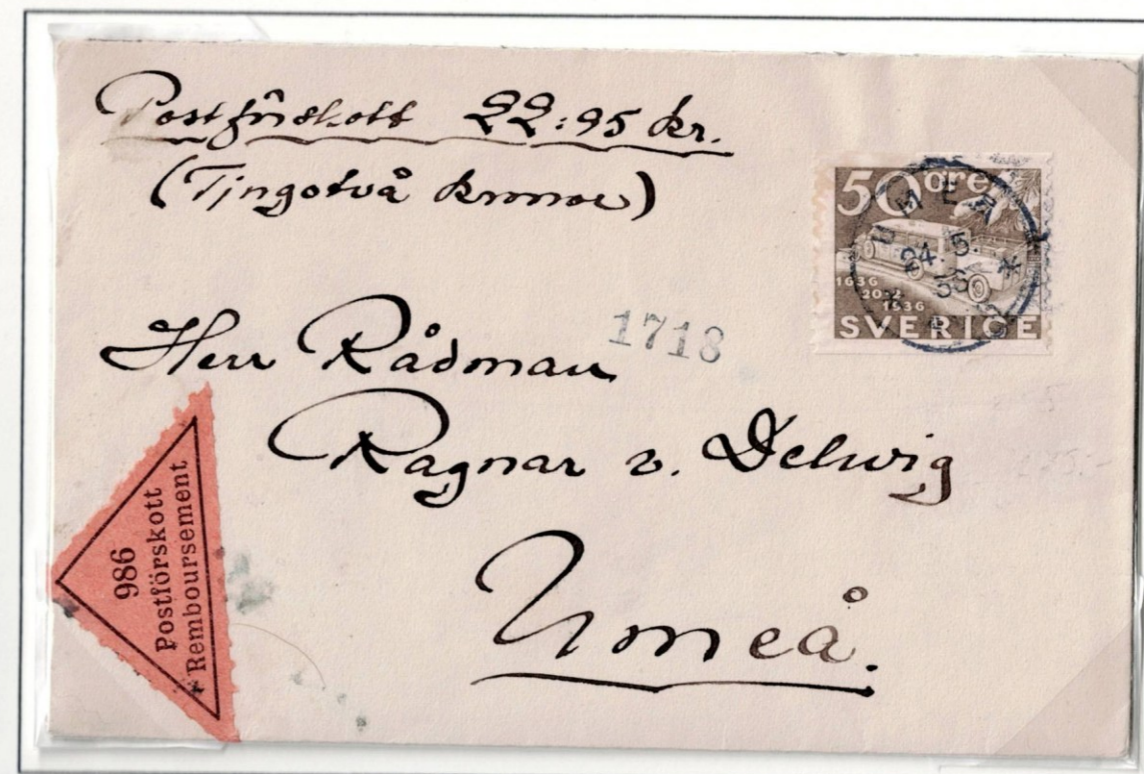 Postförskott 22:95 kr.
(Tjugotvå kronor)
50 öre
UMEÅ
24.5.
36
1636
20 2
1936
SVERIGE
1718
Herr Rådman
Ragnar v. Delwig
Umeå.
986
Postförskott
Remboursement